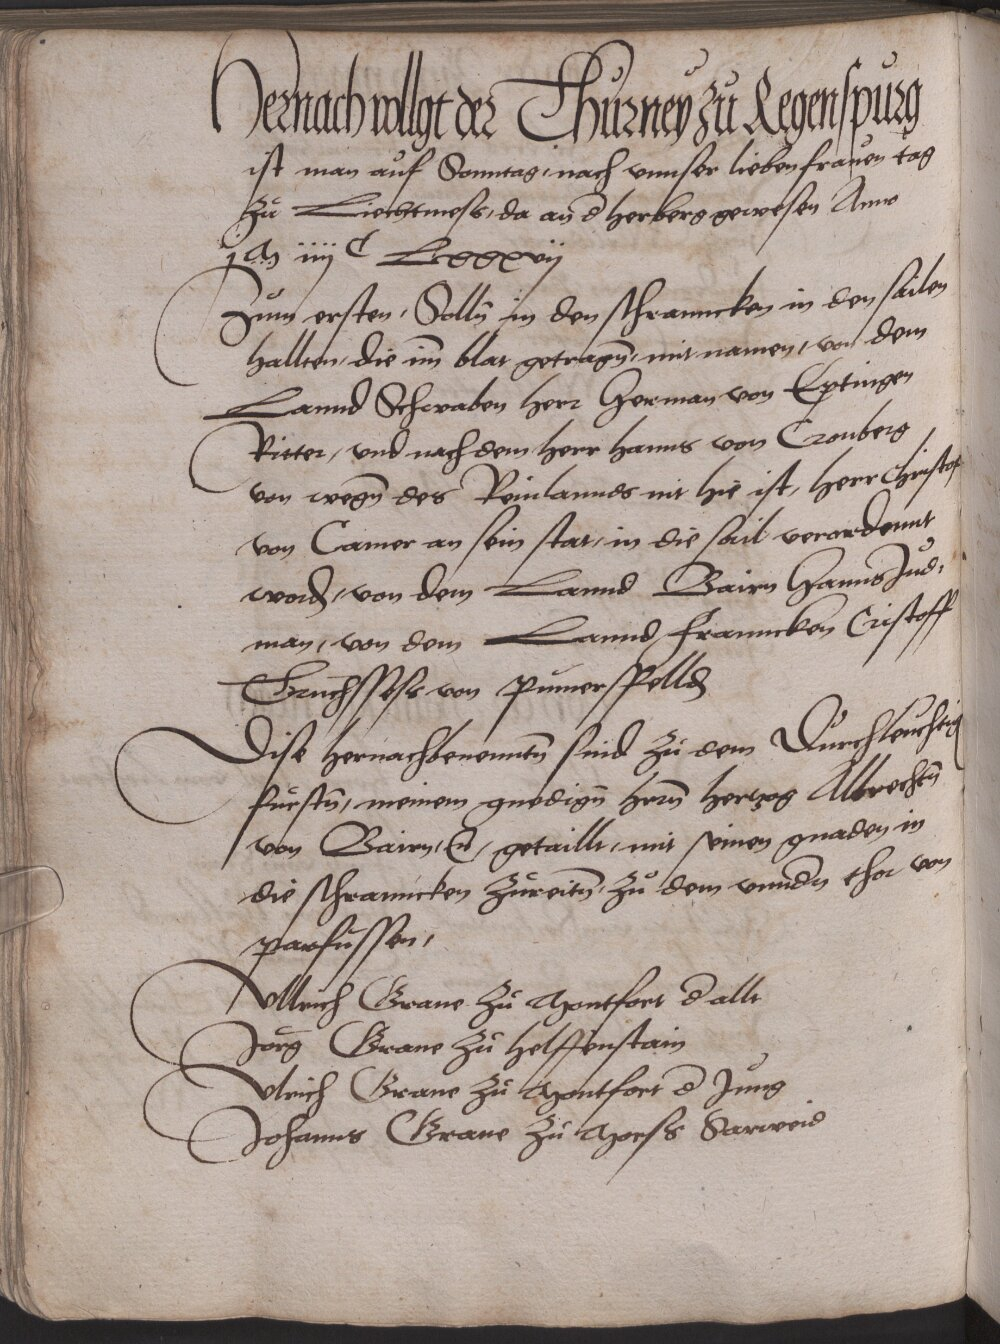 Hernach vollgt der Thurney zu Regenspurg
ist man auf Sonntag, nach vnnser lieben frauen tag
zu Liechtmess, da an d herberg gewesen Anno
j M iiij C Lxxxvij
Zum ersten, Solln in den schranncken in den sailen
hallten, die im blat getragn, mit namen, von dem
Lannd Schwaben herr Herman von Eptingen
Ritter, vnd nach dem herr hanns von Cronberg
von wegn des Reinlannds nit hie ist, herr Christof
von Camer an sein stat, in die sail verordennt
word, von dem Lannd Bairn Hanns Jud,
man, von dem Lannd Franncken Cristoff
Truchssess von pumerssfelld
Dise hernachbenenntn sind zu dem Durchleuchtig
furstn, meinem gnedign hrrn hertzog Albrechtn
von Bairn, getaillt, mit seinen gnaden in
die schranncken zureitn, zu dem vnndn thor von
parfussen,
Vllrich Graue zu Montfort d allt
Jorg Graue zu helffenstain
Vlrich Graue zu Montfort d Jung
Johanns Graue zu Morss Sarweid